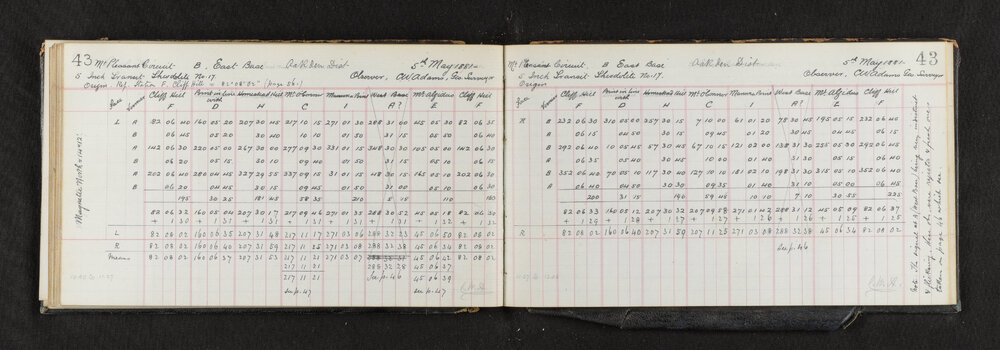 43 Mt Pleasant Circuit B. East Base Oakden Dist 5th May 1881
5 Inch Transit Theodolite No. 17 Observer, CW Adams, Geo Surveyor
Origin Ref. Station F. Cliff Hill = 82° 08' 02" (page 26.)
Face Vernier Cliff Hill Point in Line with Homestead Hill Mt O'Connor Manuka Point West Base Mt Algidus Cliff Hill
F D H C I A? E F
L A 82 06 40 160 05 20 207 30 45 217 10 15 271 01 30 288 31 00 45 05 30 82 06 35
B 06 45 05 20 30 40 10 10 01 50 31 15 05 50 06 40
A 142 06 30 220 05 00 267 30 00 277 09 30 331 01 15 348 30 30 105 05 00 142 06 30
B 06 20 05 15 30 10 09 40 01 50 31 15 05 10 06 30
A 202 06 40 280 04 45 327 29 55 337 09 15 31 01 15 48 30 15 165 05 10 202 06 30
B 06 20 04 45 30 15 09 45 01 50 31 00 05 10 06 30
195 30 25 181 45 58 35 210 5 15 110 180
82 06 32 160 05 04 207 30 17 217 09 46 271 01 35 288 30 52 45 05 18 82 06 30
+ 1 30 + 1 31 + 1 31 + 1 31 + 1 31 + 1 31 + 1 32 + 1 32
L 82 08 02 160 06 35 207 31 48 217 11 17 271 03 06 288 32 23 45 06 50 82 08 02
R 82 08 02 160 06 40 207 31 59 217 11 25 271 03 08 288 32 38 45 06 34 82 08 02
Means 82 08 02 160 06 37 207 31 53 217 11 21 271 03 07 45 06 42 82 08 02
217 11 21 288 32 28 45 06 37
217 11 21 See p. 46 45 06 39
See p. 47 See p. 47
Magnetic North = 14° 12'
Mt Pleasant Circuit B East Base Oakden Dist 5th May 1881 43
5 Inch Transit Theodolite No 17. Observer, CW Adams Geo Surveyor
Origin
Face Vernier Cliff Hill Point in Line with Homestead Hill Mt O'Connor Manuka Point West Base Mt Algidus Cliff Hill
F D H C I A? E F
R A 232 06 30 310 05 00 357 30 15 7 10 00 61 01 20 78 30 45 195 05 15 232 06 40
B 06 15 04 50 30 15 09 45 01 20 30 45 04 45 06 15
A 292 06 40 10 05 45 57 30 45 67 10 15 121 02 00 138 31 30 255 05 30 292 06 45
B 06 35 05 40 30 45 10 00 01 40 31 30 05 15 06 40
A 352 06 40 70 05 10 117 30 40 127 10 10 181 02 10 198 31 30 315 05 10 352 06 40
B 06 40 04 50 30 30 09 35 01 40 31 10 05 00 06 45
200 31 15 190 59 45 10 10 7 10 30 55 225
82 06 33 160 05 12 207 30 32 207 09 58 271 01 42 288 31 12 45 05 09 82 06 37
+ 1 29 + 1 28 + 1 27 + 1 27 + 1 26 + 1 26 + 1 25 + 1 25
R 82 08 02 160 06 40 207 31 59 217 11 25 271 03 08 288 32 38 45 06 34 82 08 02
See p. 46
Note. The signal at A (West Base) being very indistinct
& flickering, these obs were rejected & fresh ones
taken on page 46 which see